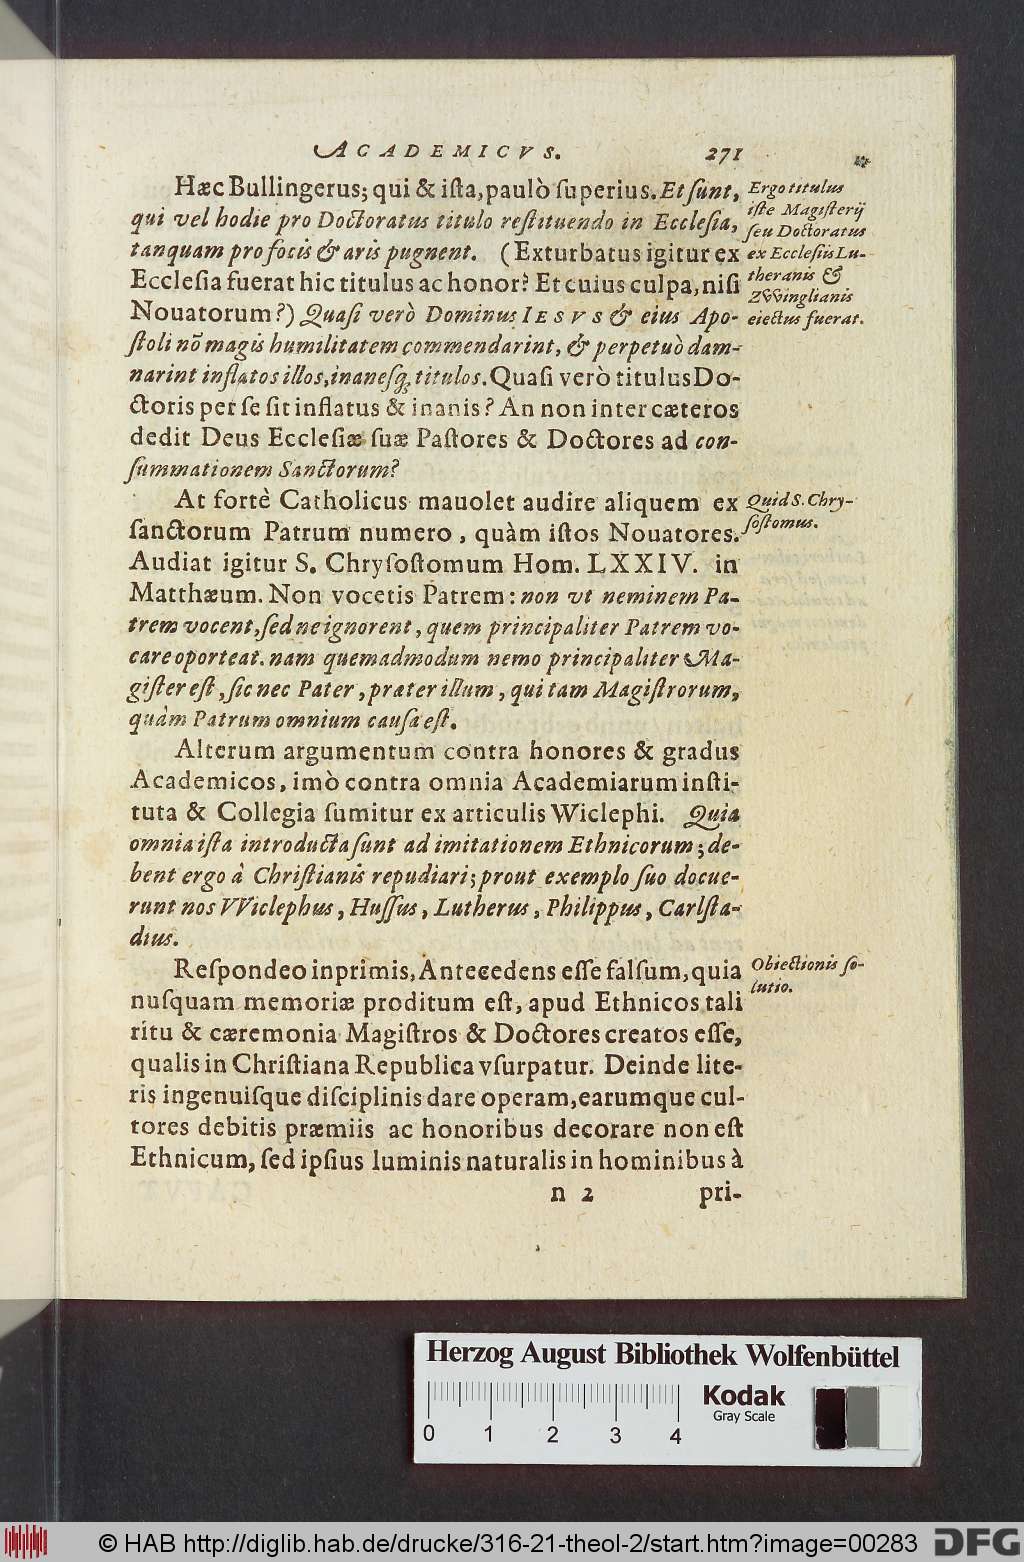 ACADEMICVS. 271
Hæc Bullingerus; qui & iſta, paulò ſuperius. Et ſunt,
qui vel hodie pro Doctoratus titulo reſtituendo in Eccleſia,
tanquam pro focis & aris pugnent. (Exturbatus igitur ex
Eccleſia fuerat hic titulus ac honor? Et cuius culpa, niſi
Nouatorum?) Quaſi verò Dominus IESVS & eius Apo-
ſtoli nō magis humilitatem commendarint, & perpetuò dam-
narint inflatos illos, inanesq; titulos. Quaſi verò titulus Do-
ctoris per ſe ſit inflatus & inanis? An non inter cæteros
dedit Deus Eccleſiæ ſuæ Paſtores & Doctores ad con-
ſummationem Sanctorum?
Ergo titulus
iſte Magiſterij
ſeu Doctoratus
ex Eccleſiis Lu-
theranis &
ZVVinglianis
eiectus fuerat.
At fortè Catholicus mauolet audire aliquem ex
ſanctorum Patrum numero, quàm iſtos Nouatores.
Audiat igitur S. Chryſoſtomum Hom. LXXIV. in
Matthæum. Non vocetis Patrem: non vt neminem Pa-
trem vocent, ſed ne ignorent, quem principaliter Patrem vo-
care oporteat. nam quemadmodum nemo principaliter Ma-
giſter eſt, ſic nec Pater, præter illum, qui tam Magiſtrorum,
quàm Patrum omnium cauſa eſt.
Quid S. Chry-
ſoſtomus.
Alterum argumentum contra honores & gradus
Academicos, imò contra omnia Academiarum inſti-
tuta & Collegia ſumitur ex articulis Wiclephi. Quia
omnia iſta introducta ſunt ad imitationem Ethnicorum; de-
bent ergo à Chriſtianis repudiari; prout exemplo ſuo docue-
runt nos VViclephus, Huſſus, Lutherus, Philippus, Carlſta-
dius.
Reſpondeo inprimis, Antecedens eſſe falſum, quia
nuſquam memoriæ proditum eſt, apud Ethnicos tali
ritu & cæremonia Magiſtros & Doctores creatos eſſe,
qualis in Chriſtiana Republica vſurpatur. Deinde lite-
ris ingenuiſque diſciplinis dare operam, earumque cul-
tores debitis præmiis ac honoribus decorare non eſt
Ethnicum, ſed ipſius luminis naturalis in hominibus à
Obiectionis ſo-
lutio.
n 2 pri-
Herzog August Bibliothek Wolfenbüttel
Kodak
Gray Scale
0 1 2 3 4
© HAB http://diglib.hab.de/drucke/316-21-theol-2/start.htm?image=00283
DFG